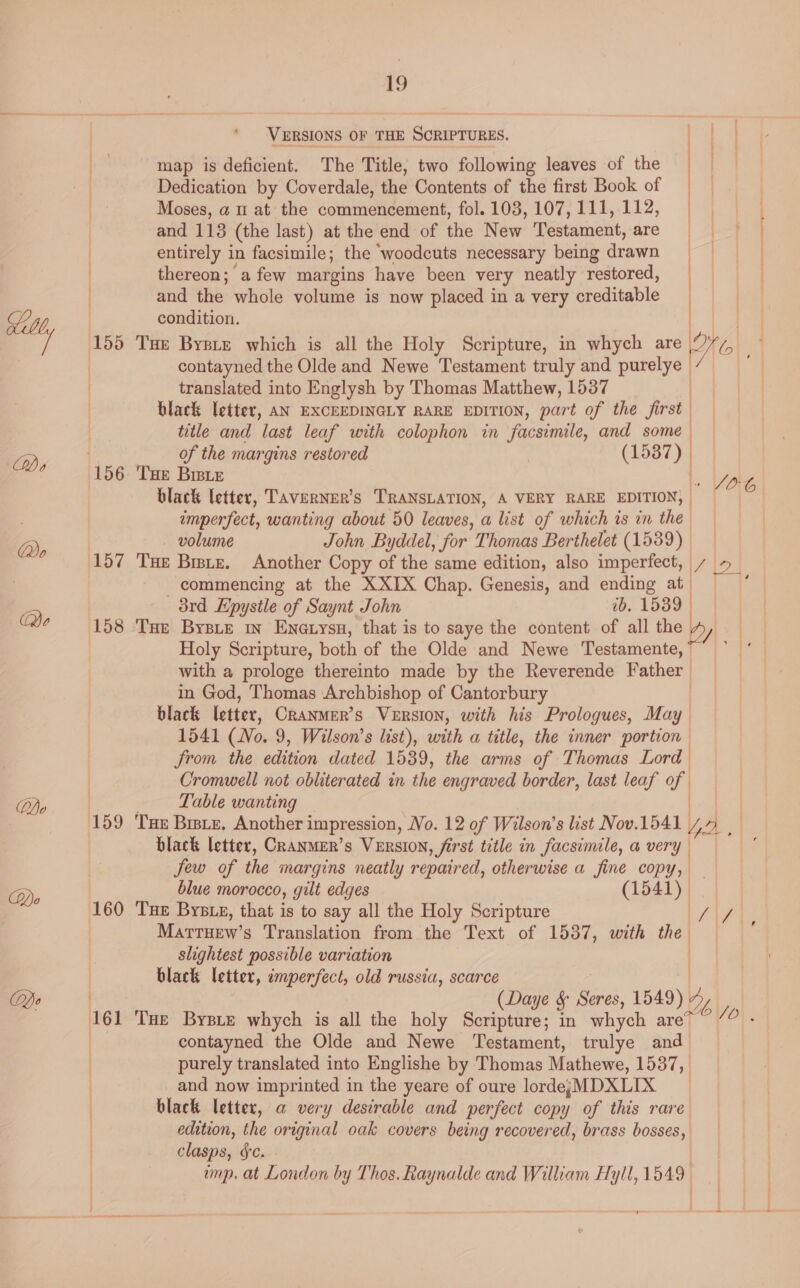 19
VERSIONS OF THE SCRIPTURES.
map is deficient. The Title, two following leaves of the
Dedication by Coverdale, the Contents of the first Book of
Moses, a II at the commencement, fol. 103, 107, 111, 112,
and 113 (the last) at the end of the New Testament, are
entirely in facsimile; the woodcuts necessary being drawn
thereon; a few margins have been very neatly restored,
and the whole volume is now placed in a very creditable
condition.
Lilly 155 THE BYBLE which is all the Holy Scripture, in whych are
contayned the Olde and Newe Testament truly and purelye
translated into Englysh by Thomas Matthew, 1537
black letter, AN EXCEEDINGLY RARE EDITION, part of the first
title and last leaf with colophon in facsimile, and some
of the margins restored (1537)
Do 156 THE BIBLE
black letter, TAVERNER'S TRANSLATION, A VERY RARE EDITION,
imperfect, wanting about 50 leaves, a list of which is in the
volume John Byddel, for Thomas Berthelet (1539)
Do 157 THE BIBLE. Another Copy of the same edition, also imperfect,
commencing at the XXIX Chap. Genesis, and ending at
3rd Epystle of Saynt John ib. 1539
Do 158 THE BYBLE IN ENGLYSH, that is to saye the content of all the
Holy Scripture, both of the Olde and Newe Testamente,
with a prologe thereinto made by the Reverende Father
in God, Thomas Archbishop of Cantorbury
black letter, CRANMER'S VERSION, with his Prologues, May
1541 (No. 9, Wilson's list), with a title, the inner portion
from the edition dated 1539, the arms of Thomas Lord
Cromwell not obliterated in the engraved border, last leaf of
Table wanting
Do 159 THE BIBLE. Another impression, No. 12 of Wilson's list Nov. 1541
black letter, CRANMER'S VERSION, first title in facsimile, a very
few of the margins neatly repaired, otherwise a fine copy,
blue morocco, gilt edges (1541)
Do 160 THE BYBLE, that is to say all the Holy Scripture
MATTHEW'S Translation from the Text of 1537, with the
slightest possible variation
black letter, imperfect, old russia, scarce
Do (Daye & Seres, 1549)
161 THE BYBLE whych is all the holy Scripture; in whych are
contayned the Olde and Newe Testament, trulye and
purely translated into Englishe by Thomas Mathewe, 1537,
and now imprinted in the yeare of oure lorde;MDXLIX
black letter, a very desirable and perfect copy of this rare
edition, the original oak covers being recovered, brass bosses,
clasps, &c.
imp. at London by Thos. Raynalde and William Hyll, 1549